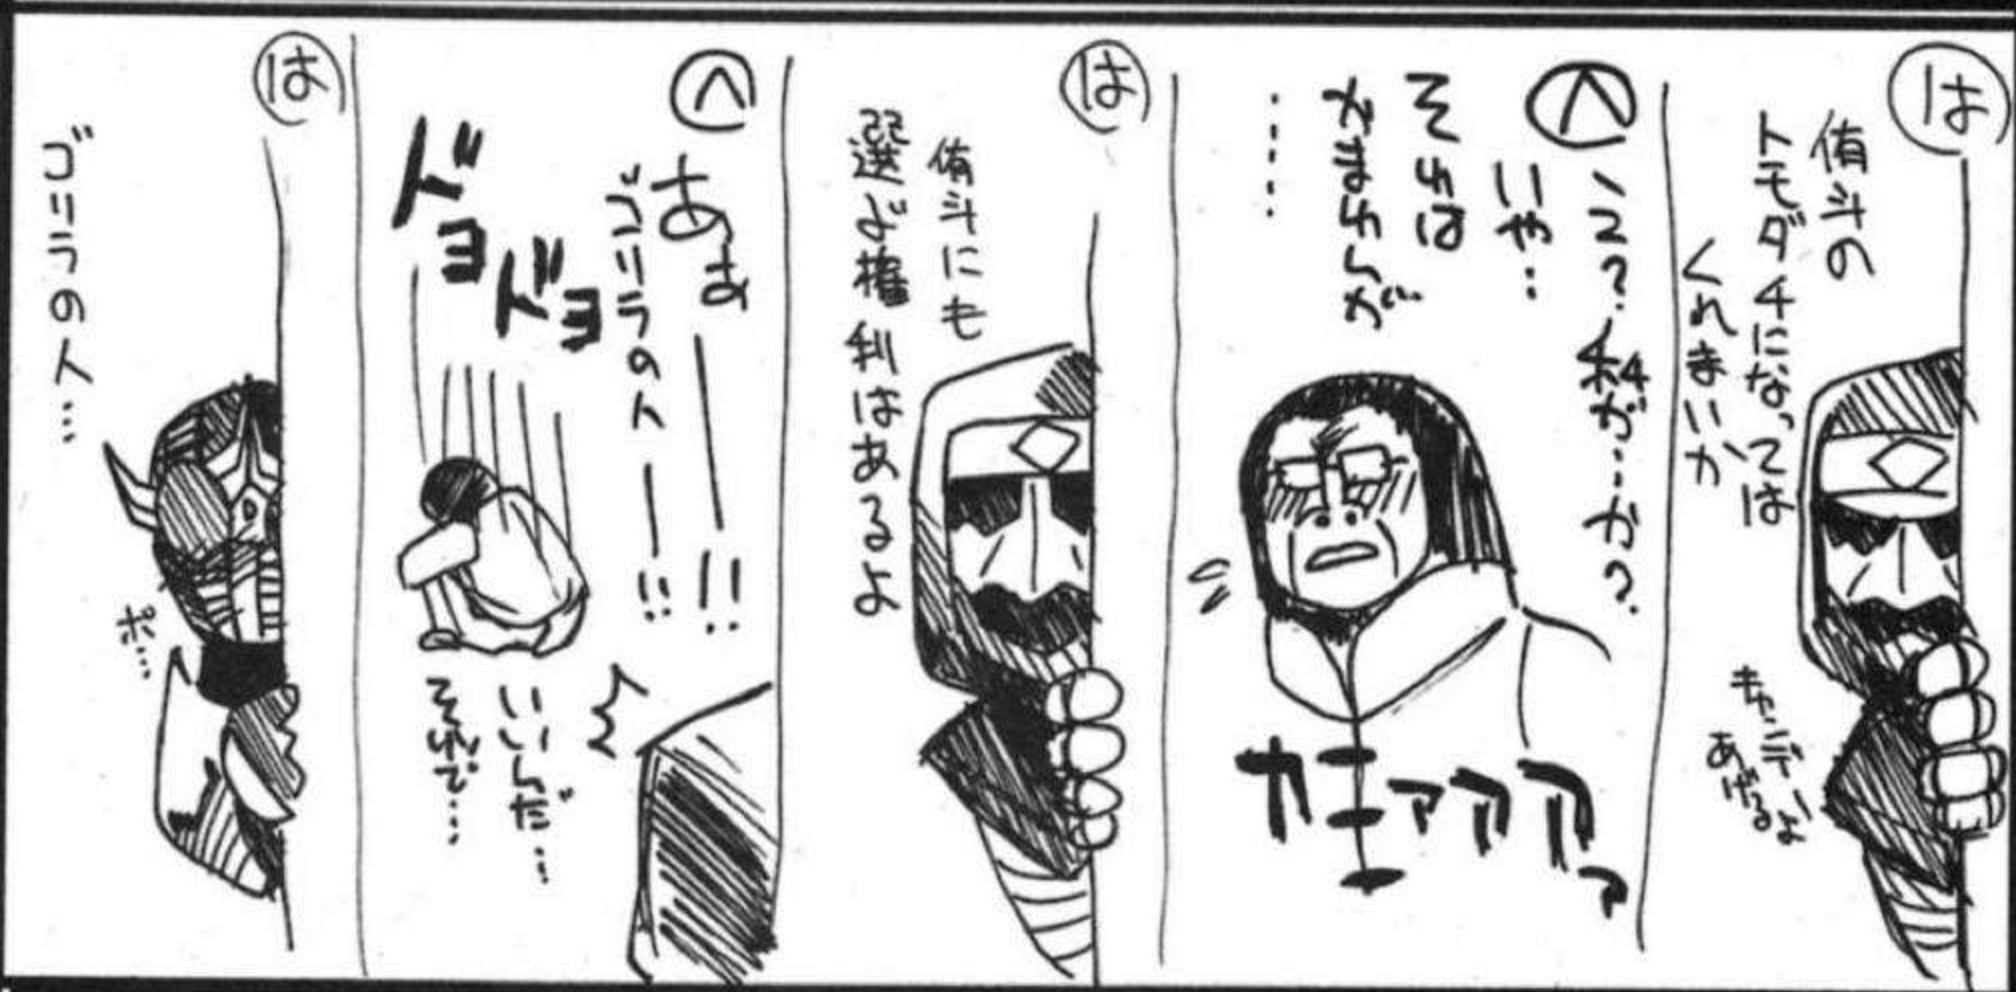 は
侑斗の
トモダチになっては
くれまいか
キャンディーよ
あげる
へ
え?私が…か?
いや…
それは
かまわんが
……
カァァァァ
は
侑斗にも
選ぶ権利はあるよ
へ
あぁ――!!
ゴリラの人――!!
ドヨドヨ
いいんだ…
それで…
は
ゴリラの人…
ポ…